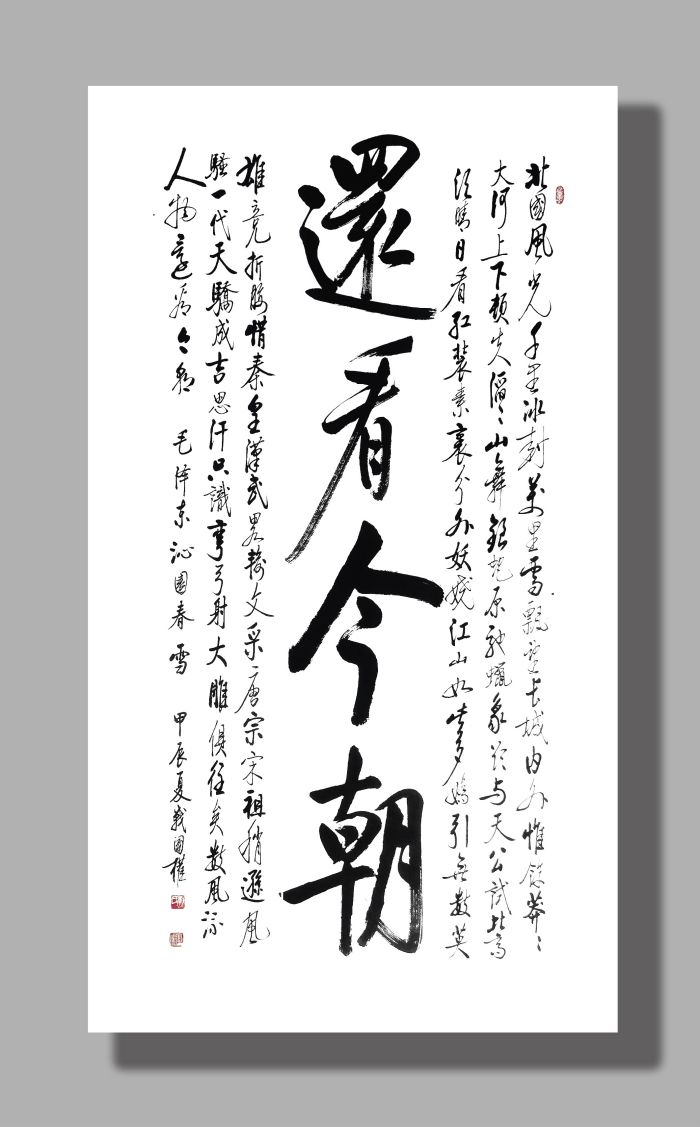 北國風光千里冰封萬里雪飄望长城内外惟餘莽々
大河上下頓失滔々山舞銀蛇原馳蠟象欲与天公試比高
須晴日看紅裝素裹分外妖嬈江山如此多嬌引無數英
還看今朝
雄竞折腰惜秦皇漢武略輸文采唐宗宋祖稍遜風
騷一代天驕成吉思汗只識彎弓射大雕俱往矣數風流
人物還看今朝 毛泽东 沁園春 雪 甲辰夏 国權